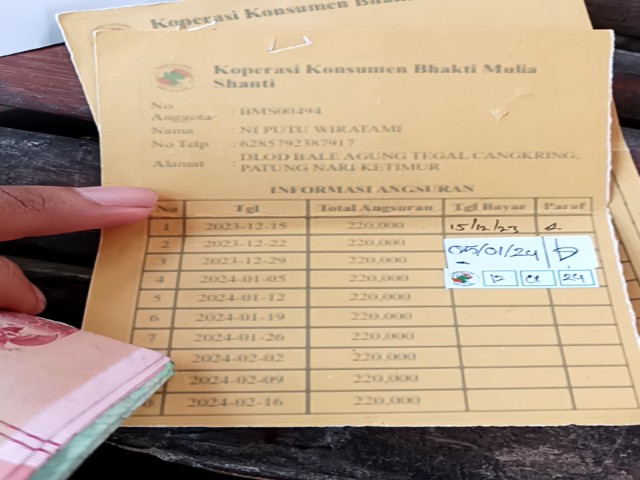 Koperasi Konsumen Bhakti
Koperasi Konsumen Bhakti Mulia
Shanti
No
Anggota : BMS00494
Nama : NI PUTU WIRATAMI
No Telp : 6285792387917
Alamat : DLOD BALE AGUNG TEGAL CANGKRING,
PATUNG NARI-KETIMUR
INFORMASI ANGSURAN
No Tgl Total Angsuran Tgl Bayar Paraf
1 2023-12-15 220,000 15/12/23
2 2023-12-22 220,000
3 2023-12-29 220,000 05/01/24
4 2024-01-05 220,000 12 01 24
5 2024-01-12 220,000
6 2024-01-19 220,000
7 2024-01-26 220,000
2024-02-02 220,000
2024-02-09 220,000
2024-02-16 220,000